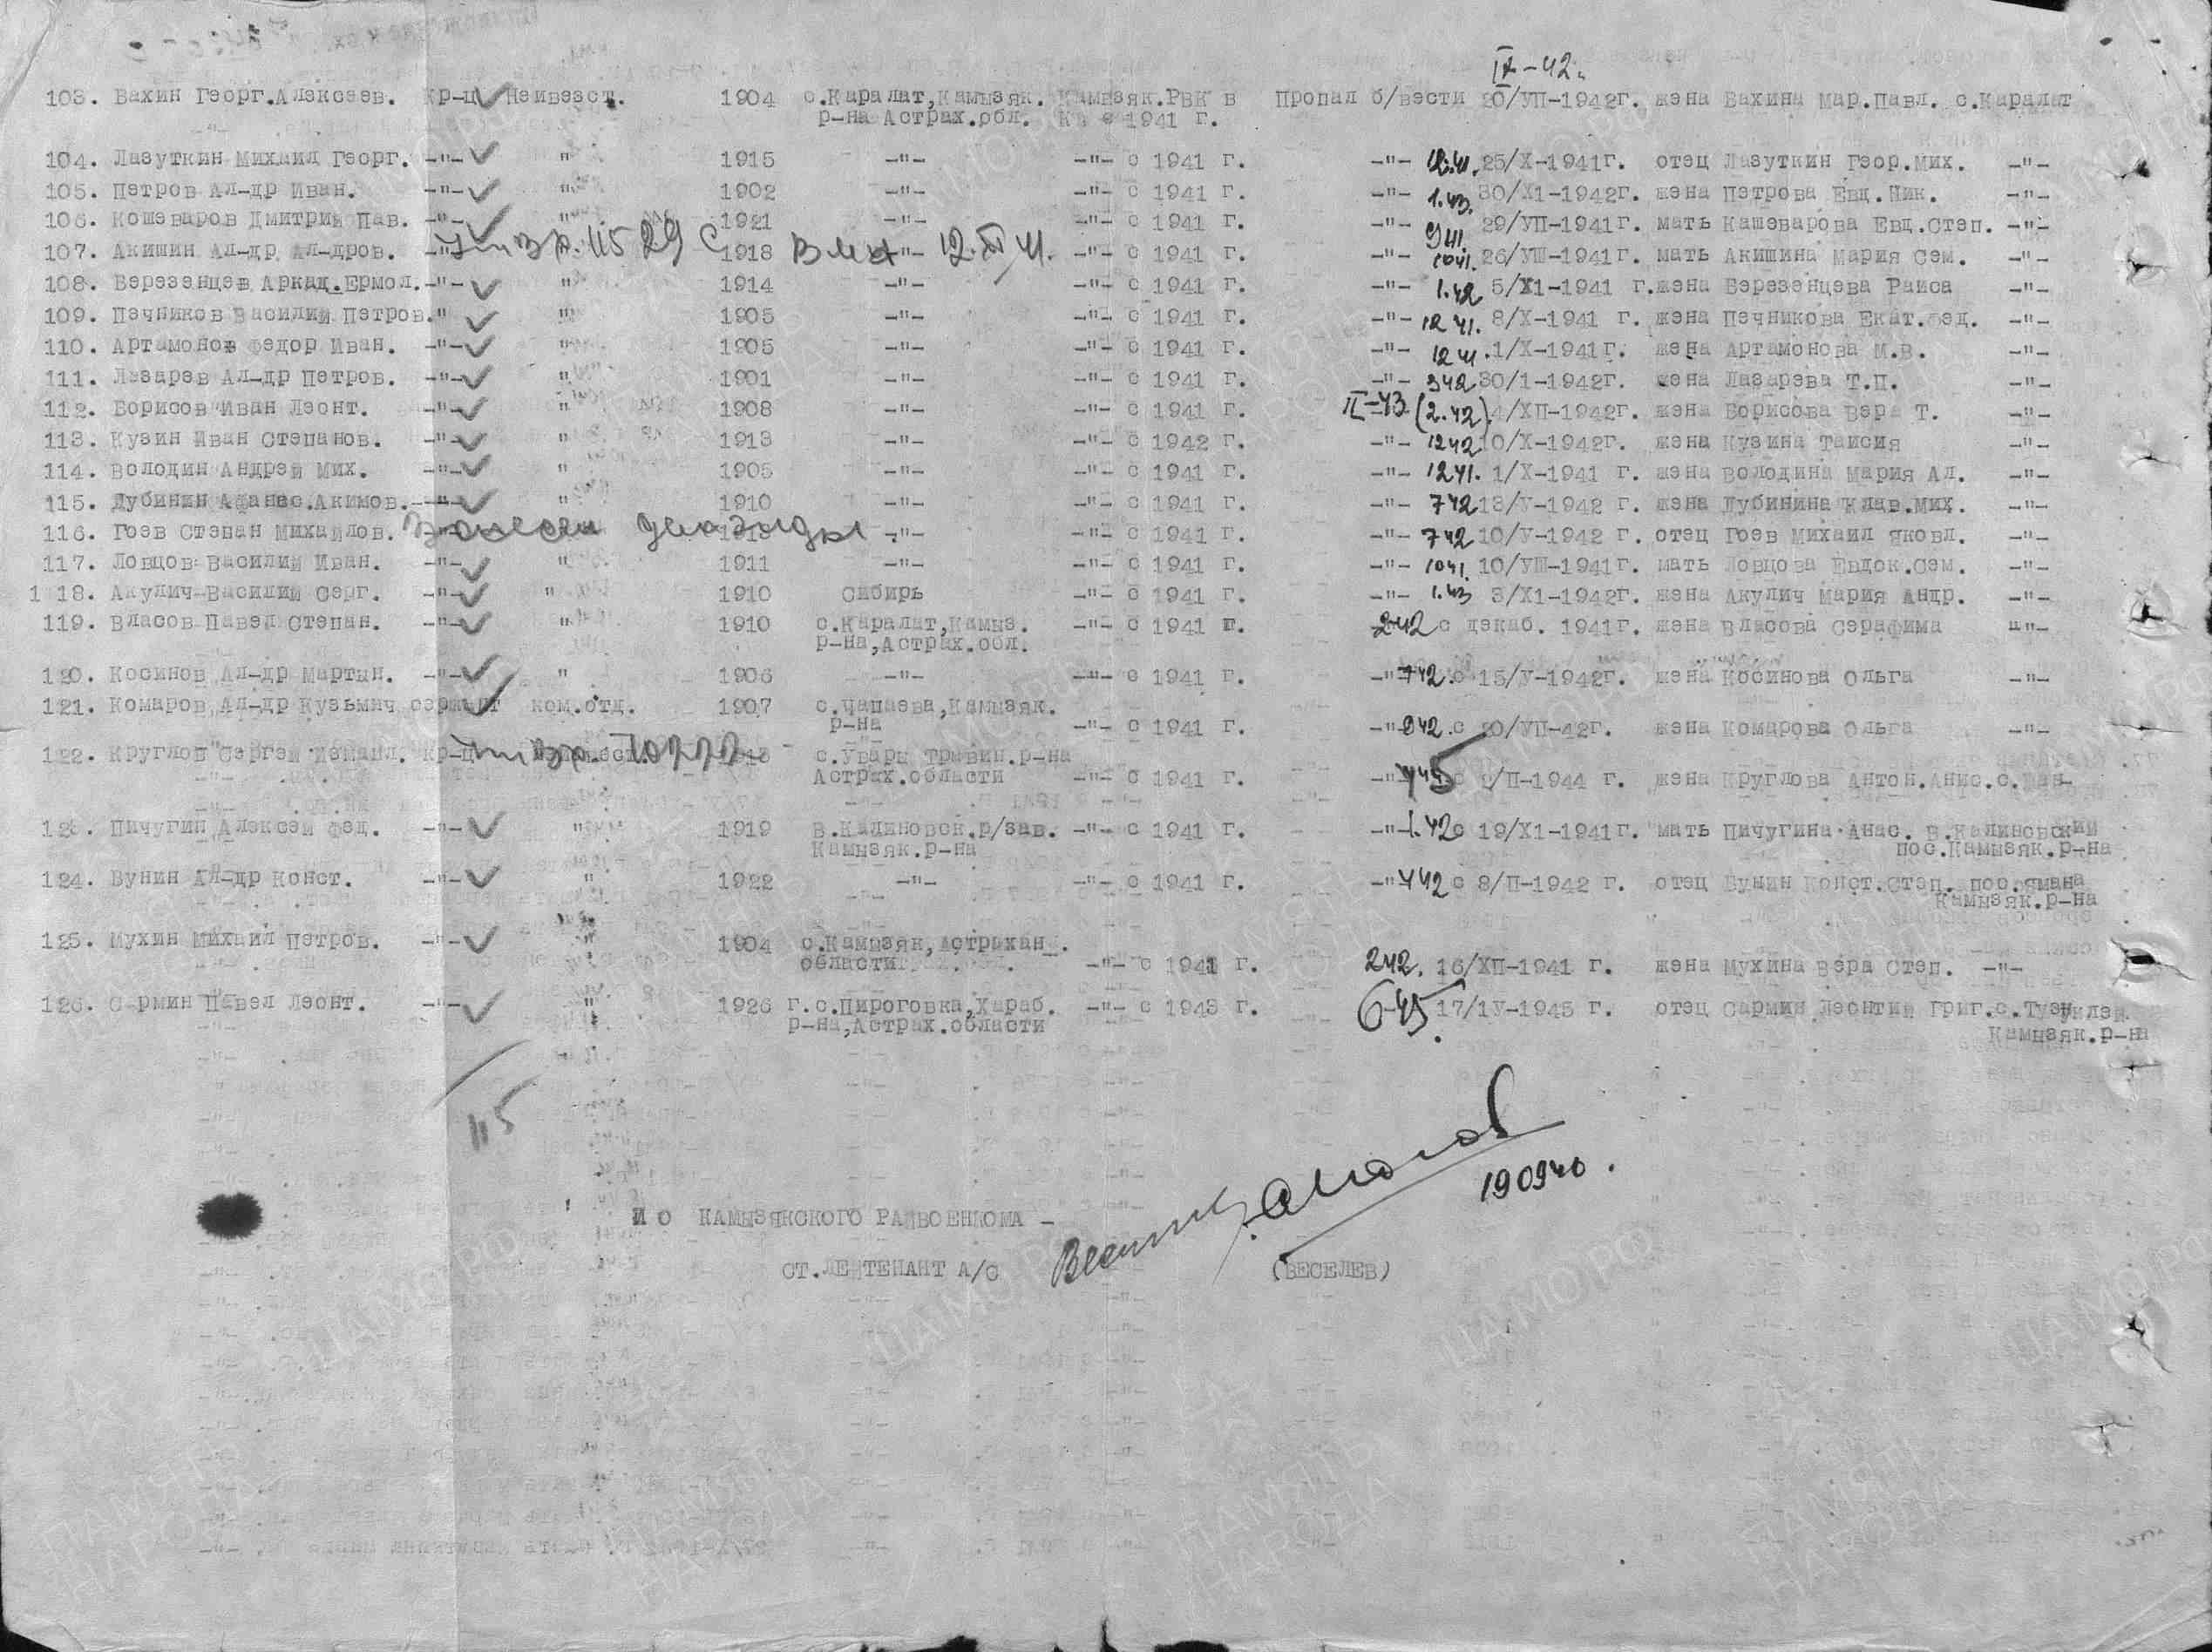 IX-42.
103. Вахин Георг.Алэксэев. кр-ц Неизвэст. 1904 с.Каралат,Камызяк. Камызяк.РВК в Пропал б/вэсти 20/VII-1942г. жэна Вахина Мар.Павл. с.Каралат
р-на Астрах.обл. КА с 1941 г.
104. Лазуткин Михаил Гэорг. -"- " 1915 -"- -"- с 1941 г. -"- 12.41. 25/X-1941г. отэц Лазуткин Гэор.Мих. -"-
105. Пэтров Ал-др Иван. -"- " 1902 -"- -"- с 1941 г. -"- 1.43. 30/X1-1942г. жэна Пэтрова Евд.Ник. -"-
106. Кошэваров Дмитрий Пав. -"- " 1921 -"- -"- с 1941 г. -"- 941. 29/VII-1941г. мать Кашэварова Евд.Стэп. -"-
107. Акишин Ал-др Ал-дров. -"- 11529 с 1918 -"- 12.XI 41. -"- с 1941 г. -"- 1041. 26/VIII-1941г. мать Акишина Мария Сэм. -"-
108. Бэрэзэнцэв Аркад.Ермол. -"- " 1914 -"- -"- с 1941 г. -"- 1.42 5/X1-1941 г. жэна Бэрэзэнцэва Раиса -"-
109. Пэчников Василий Пэтров. " " 1905 -"- -"- с 1941 г. -"- 1241. 8/X-1941 г. жэна Пэчникова Екат.Фэд. -"-
110. Артамонов Фэдор Иван. -"- " 1905 -"- -"- с 1941 г. -"- 1241. 1/X-1941г. жэна Артамонова М.В. -"-
111. Лазарэв Ал-др Пэтров. -"- " 1901 -"- -"- с 1941 г. -"- 342 30/1-1942г. жэна Лазарэва Т.П. -"-
112. Борисов Иван Лэонт. -"- " 1908 -"- -"- с 1941 г. II-43 (2.42) 4/XII-1942г. жэна Борисова Вэра Т. -"-
113. Кузин Иван Стэпанов. -"- " 1913 -"- -"- с 1942 г. -"- 1242 10/X-1942г. жэна Кузина Таисия -"-
114. Володин Андрэй Мих. -"- " 1905 -"- -"- с 1941 г. -"- 1241. 1/X-1941 г. жэна Володина Мария Ал. -"-
115. Дубинин Афанас.Акимов. -"- " 1910 -"- -"- с 1941 г. -"- 742 13/V-1942 г. жэна Дубинина Клав.Мих. -"-
116. Гоэв Стэпан Михайлов. дважды -"- -"- с 1941 г. -"- 742 10/V-1942 г. отэц Гоэв Михаил Яковл. -"-
117. Ловцов Василий Иван. -"- " 1911 -"- -"- с 1941 г. -"- 1041. 10/VIII-1941г. мать Ловцова Евдок.Сэм. -"-
118. Акулич Василий Сэрг. -"- " 1910 Сибирь -"- с 1941 г. -"- 1.43 3/X1-1942г. жэна Акулич Мария Андр. -"-
119. Власов Павэл Стэпан. -"- " 1910 с.Каралат,Камыз. -"- с 1941 г. 242 с дэкаб. 1941г. жэна Власова Сэрафима -"-
р-на,Астрах.обл.
120. Косинов Ал-др Мартын. -"- " 1906 -"- -"- с 1941 г. -"- 742. с 15/V-1942г. жэна Косинова Ольга -"-
121. Комаров Ал-др Кузьмич сэржант ком.отд. 1907 с.Чапаэва,Камызяк.
р-на -"- с 1941 г. -"- 942. с 20/VII-42г. жэна Комарова Ольга -"-
122. Круглов Сэргэй кр-ц с.Увары Травин.р-на
Астрах.области -"- с 1941 г. -"- с 2/II-1944 г. жэна Круглова Антон.Анис.
Пичугин Алэксэй Фэд. -"- " 1919 В.Калиновск.р/зав. -"- с 1941 г. -"- 1.42 с 19/X1-1941г. мать Пичугина Анас. В.Калиновский
Камызяк.р-на пос.Камызяк.р-на
124. Бунин Ал-др Конст. -"- " 1922 -"- -"- с 1941 г. -"- 442 с 8/II-1942 г. отэц Бунин Конст.Стэп. пос.Ямана
Камызяк.р-на
125. Мухин Михаил Пэтров. -"- " 1904 с.Камызяк,Астрахан.
области -"- с 1941 г. 242. 16/XII-1941 г. жэна Мухина Вэра Стэп. -"-
126. Сармин Павэл Лэонт. -"- " 1926 г. с.Пироговка,Хараб. -"- с 1943 г. 6-45. 17/1V-1945 г. отэц Сармин Лэонтий Григ.
р-на,Астрах.области Камызяк.р-на
115
190940.
И О КАМЫЗЯКСКОГО РАЙВОЕНКОМА -
СТ.ЛЕЙТЕНАНТ А/С (ВЕСЕЛЕВ)
ПАМЯТЬ НАРОДА
ЦАМО РФ